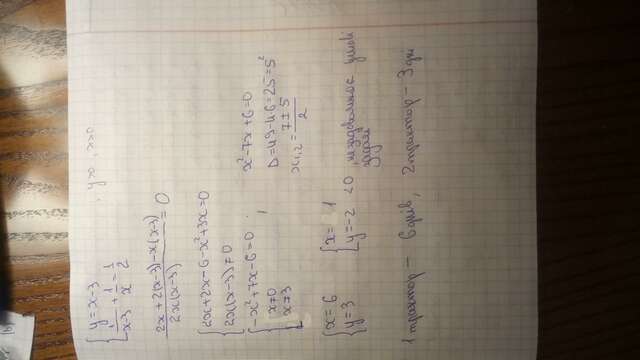 { y = x-3
{ 1/(x-3) + 1/x = 1/2 , y>0, x>0
(2x+2(x-3)-x(x-3))/(2x(x-3)) = 0
{ 2x+2x-6-x²+3x=0
{ 2x(x-3)≠0
{ -x²+7x-6=0 ; x²-7x+6=0
{ x≠0 D=49-4·6=25=5²
{ x≠3 x₁,₂ = (7±5)/2
{ x=6 { x= 1
{ y=3 { y=-2 <0, незадовольняє умові
задачі
1 трактор - 6 днів, 2 трактор - 3 дні